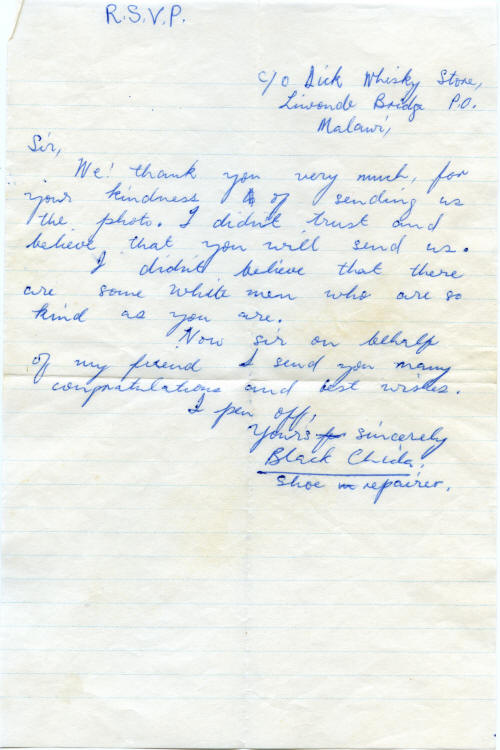 R.S.V.P.
c/o Dick Whisky Store,
Liwonde Bridge P.O.
Malawi,
Sir,
We! thank you very much, for
your kindness of sending us
the photo. I didn't trust and
believe that you will send us.
I didn't believe that there
are some white men who are so
kind as you are.
Now sir on behalf
of my friend I send you many
congratulations and best wishes.
I pen off,
Yours sincerely
Black Chida,
Shoe repairer.